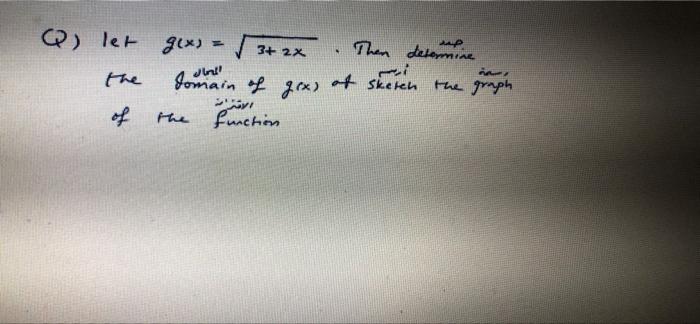 Q) let g(x) = √3+2x . Then determine
the domain of g(x) of sketch the graph
of the function